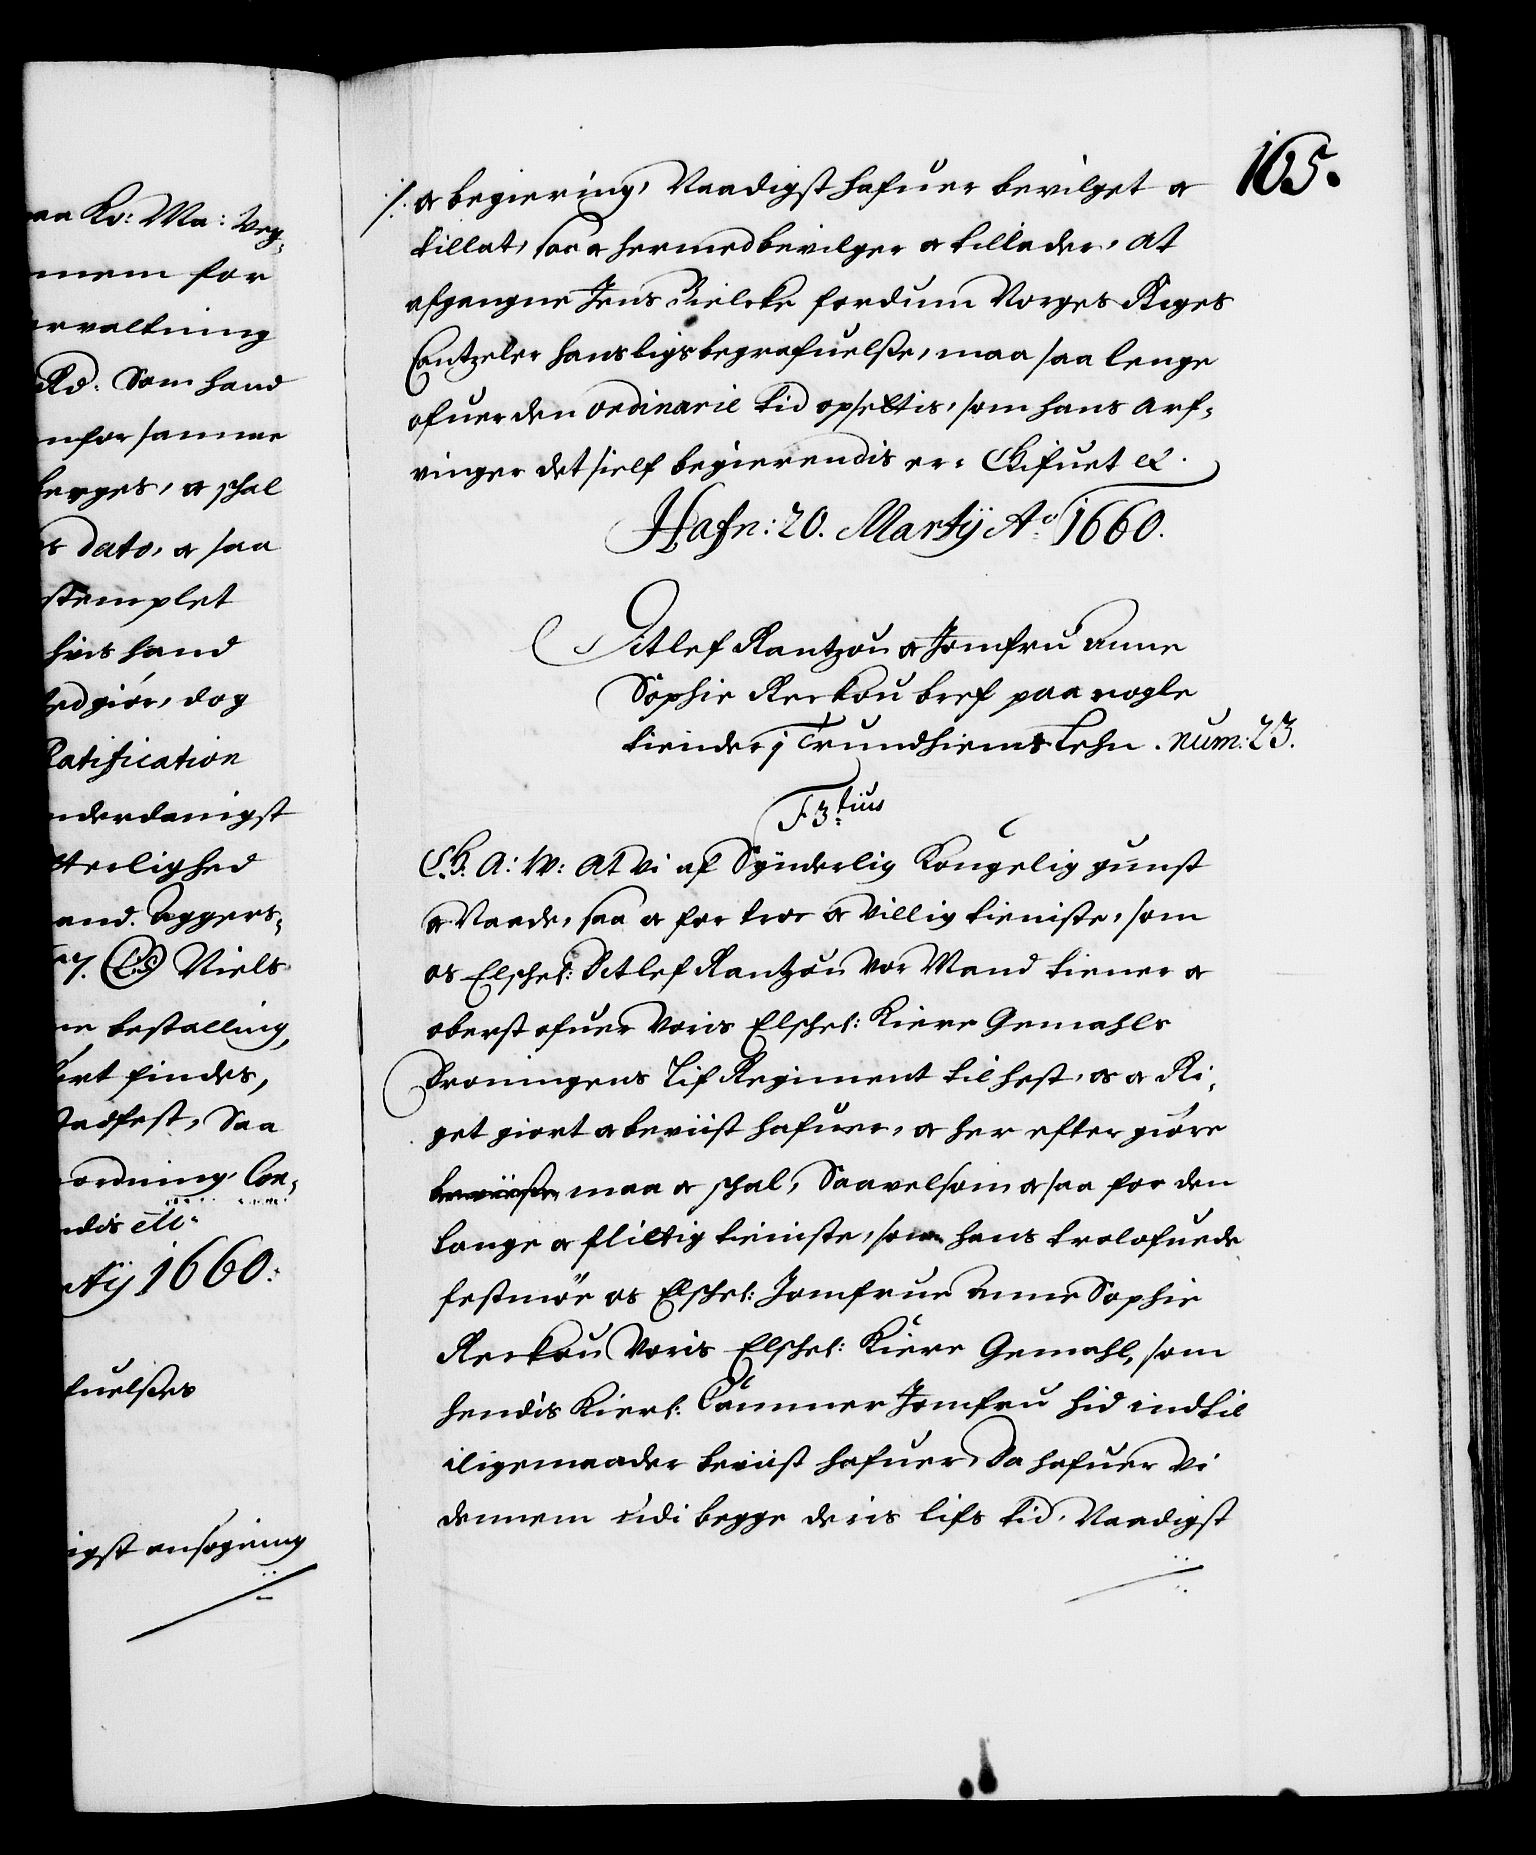 aa Ko: Ma: Veg-
mem for
rvaltning
Rd. Som hand
nfor samme
berges, oc schal
s dato, oc saa
stemplet
hvis hand
ved giör, dog
Ratification
nderdanigst
tterlighed
and. Aggers-
7. (L.S.) Niels
ne bestalling,
fört findes,
Stadfest, Saa
ordning. Con-
ndis etc.
tij 1660.
fuelses
igst ansögning
165.
oc begiering, Naadigst hafuer bevilget oc
tillat, saa oc hermed bevilger oc tillader, at
afgangne Jens Bielcke fordum Norges Riges
Cantzeler hans ligs begrafuelse, maa saa lenge
ofuer den ordinarie tid opsettis, som hans arf-
vinger det sielf begierendis er. Skrefuet etc.
Hafn: 20. Martij Ao 1660.
Ditlef Rantzou oc Jomfru Anne
Sophie Reckou bref paa nogle
tiender j Trundhiems Lehn. num: 23.
F. 3tius
G. A: W: At Vi af Synderlig Kongelig gunst
oc Naade, saa oc for troe oc villig tieniste, som
os Elschel: Ditlef Rantzou vor Mand tiener oc
oberst ofuer Voris Elschel: Kiere Gemahls
Droningens Lif Regiment til hest, os oc Ri-
get giort oc beviist hafuer, oc her efter giöre
beviise maa oc schal, Saavelsom oc saa for den
lange oc flittig tieniste, som hans trolofuede
festmöe os Elschel: Jomfrue Anne Sophie
Reckou Voris Elschel: Kiere Gemahl, som
hendis Kierl: Cammer Jomfru hid indtil
i ligemaader beviist hafuer, Da hafuer Vi
dennem udi begge deris lifs tid, Naadigst